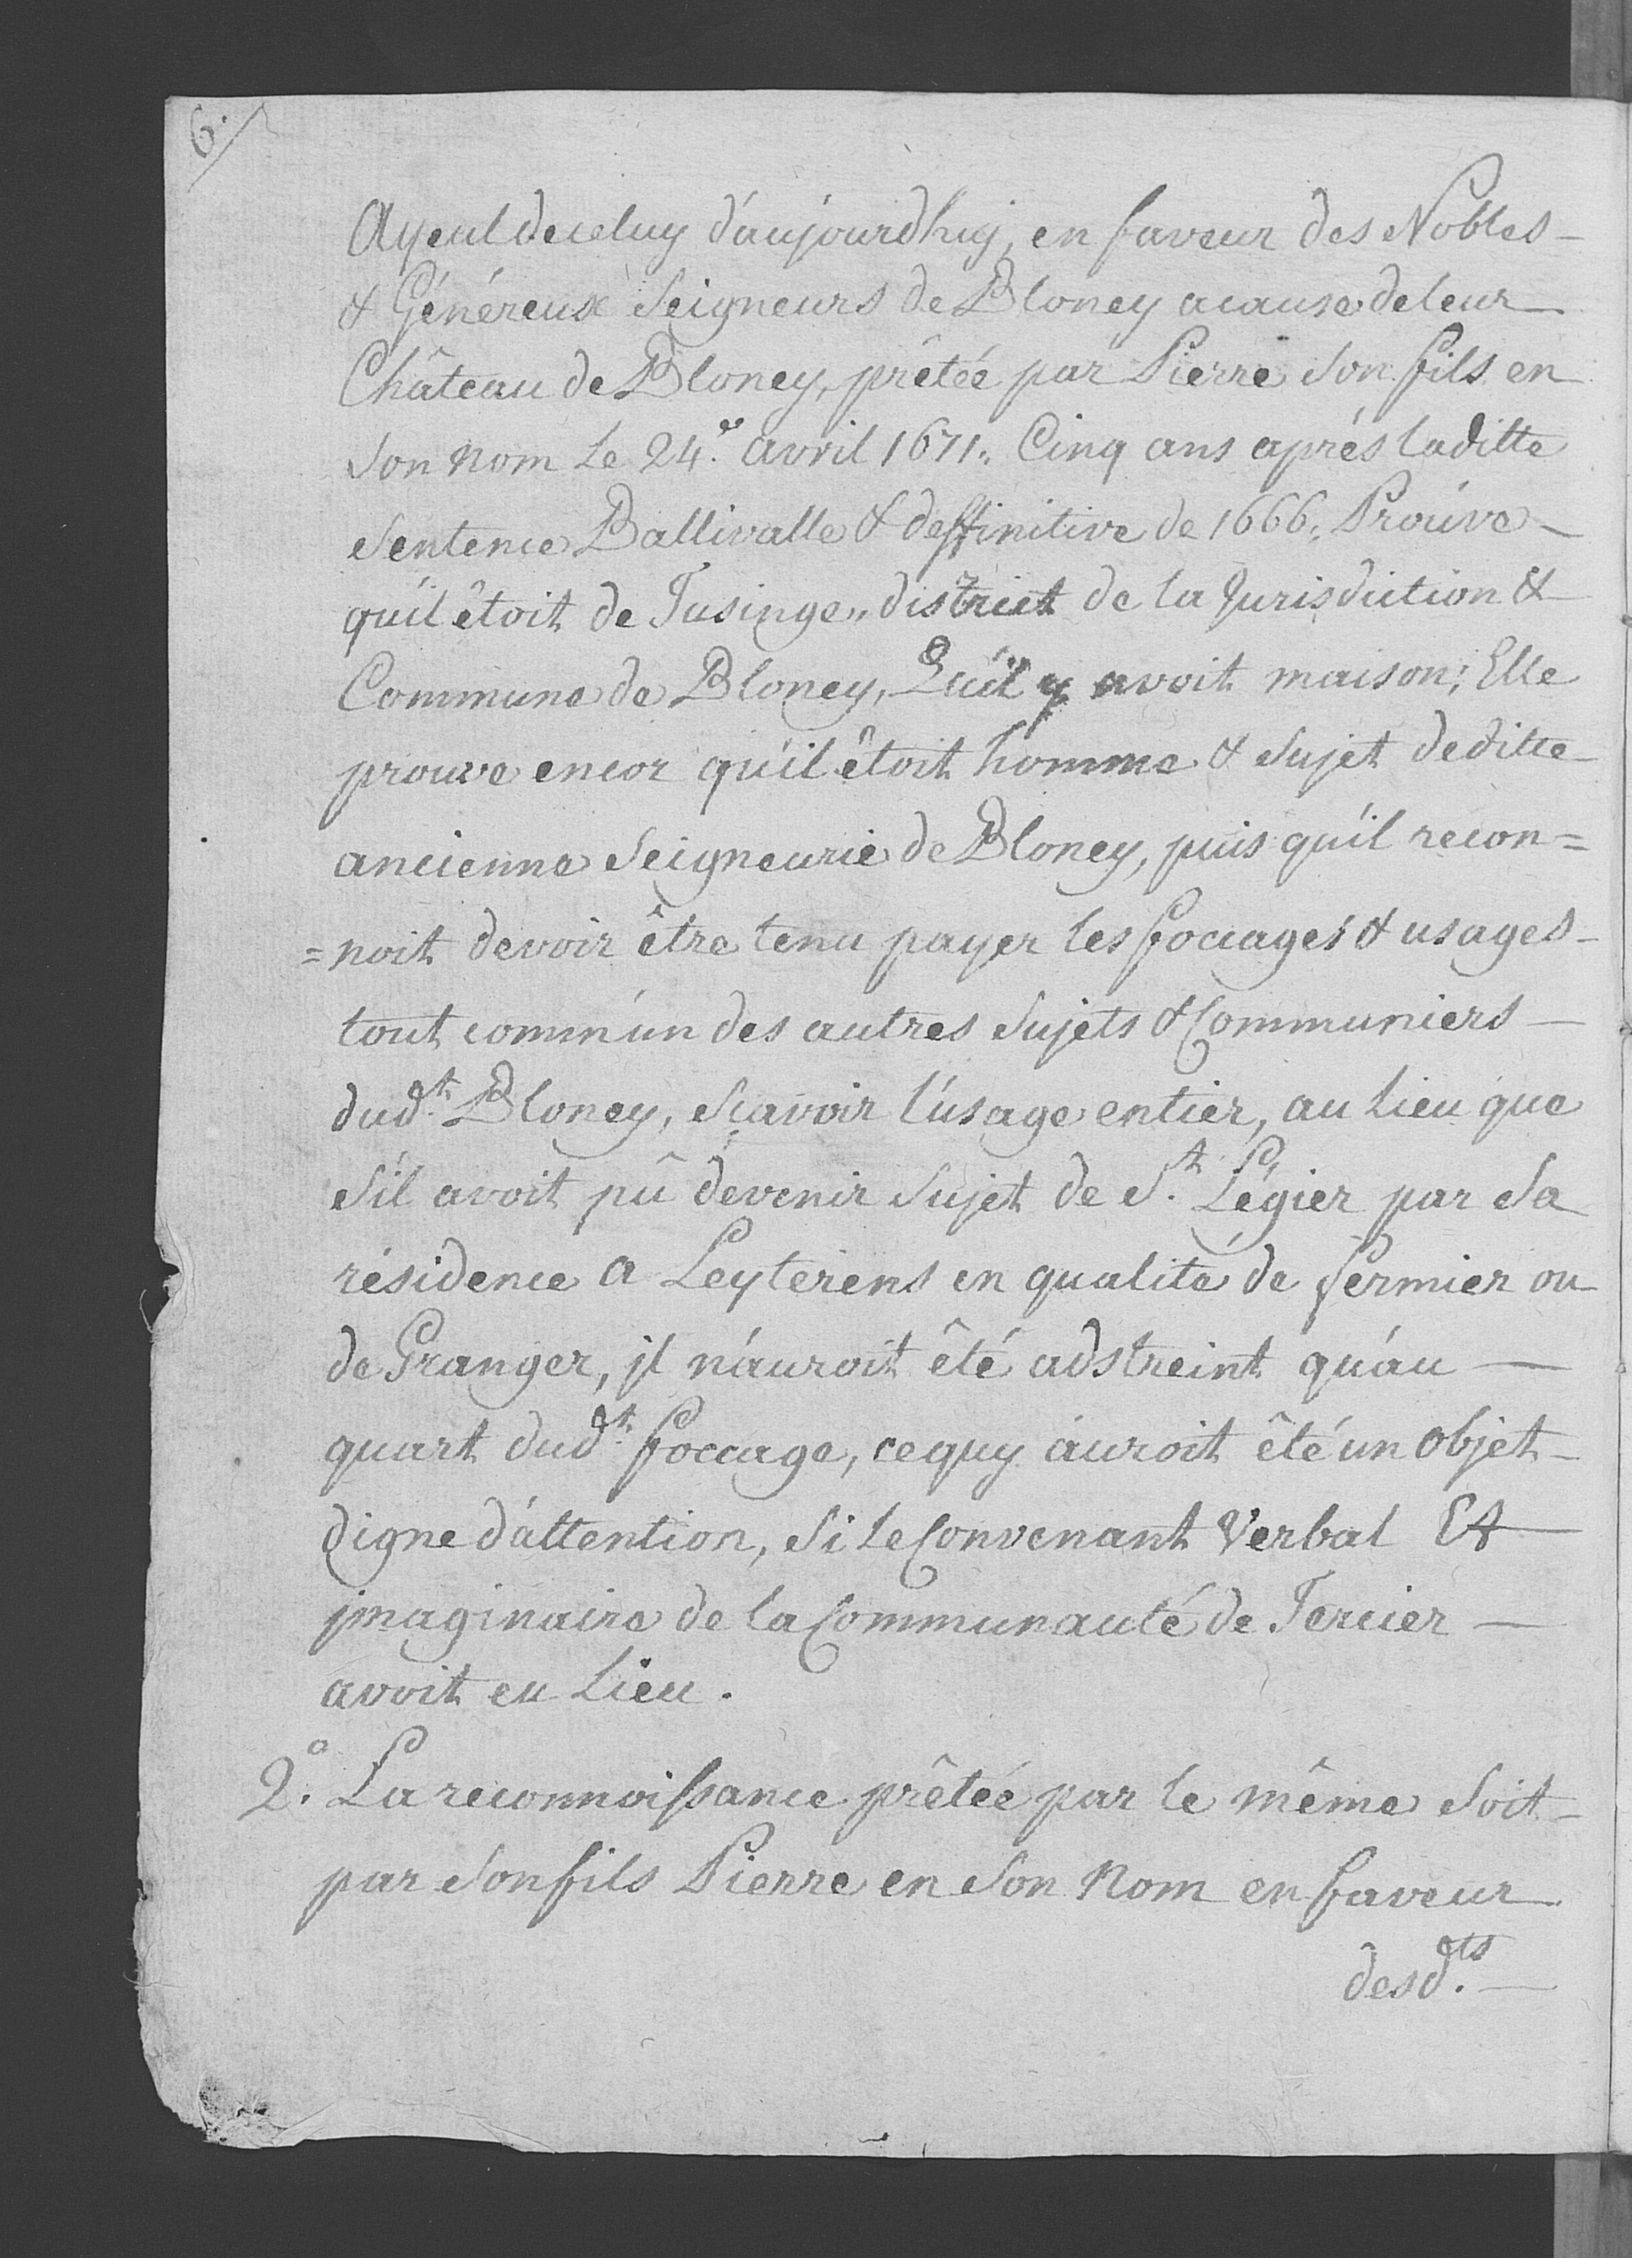 6.
Ayeul de celuy d'aujourdhuj, en faveur des Nobles
& Généreux Seigneurs de Bloney a cause de leur
Château de Bloney, prêtée par Pierre Son fils en
Son nom Le 24.e avril 1671. Cinq ans aprés laditte
Sentence Ballivalle & deffinitive de 1666. Proúve
qu'il êtoit de Tusinge, district de la Jurisdiction &
Commune de Bloney, Qu'il y avoit maison; Elle
prouve encor qu'il êtoit homme & Sujet de ditte
ancienne Seigneurie de Bloney, puis qu'il recon=
=noit devoir être tenu payer les foccages & usages
tout comm'un des autres Sujets & Communiers
dud.t Bloney, Sçavoir l'usage entier, au lieu que
S'il avoit pû devenir Sujet de S.t Légier par Sa
résidence a Leyterens en qualité de fermier ou
de Granger, jl n'auroit êté adstreint qu'au
quart dud.t foccage, ce quy auroit êté un objet
digne d'attention, Si le Convenant Verbal Et
jmaginaire de la Communauté de Tercier
avoit eu Lieu.
2.o La reconnoissance prêtée par le même Soit
par Son fils Pierre en Son Nom en faveur
desd.ts